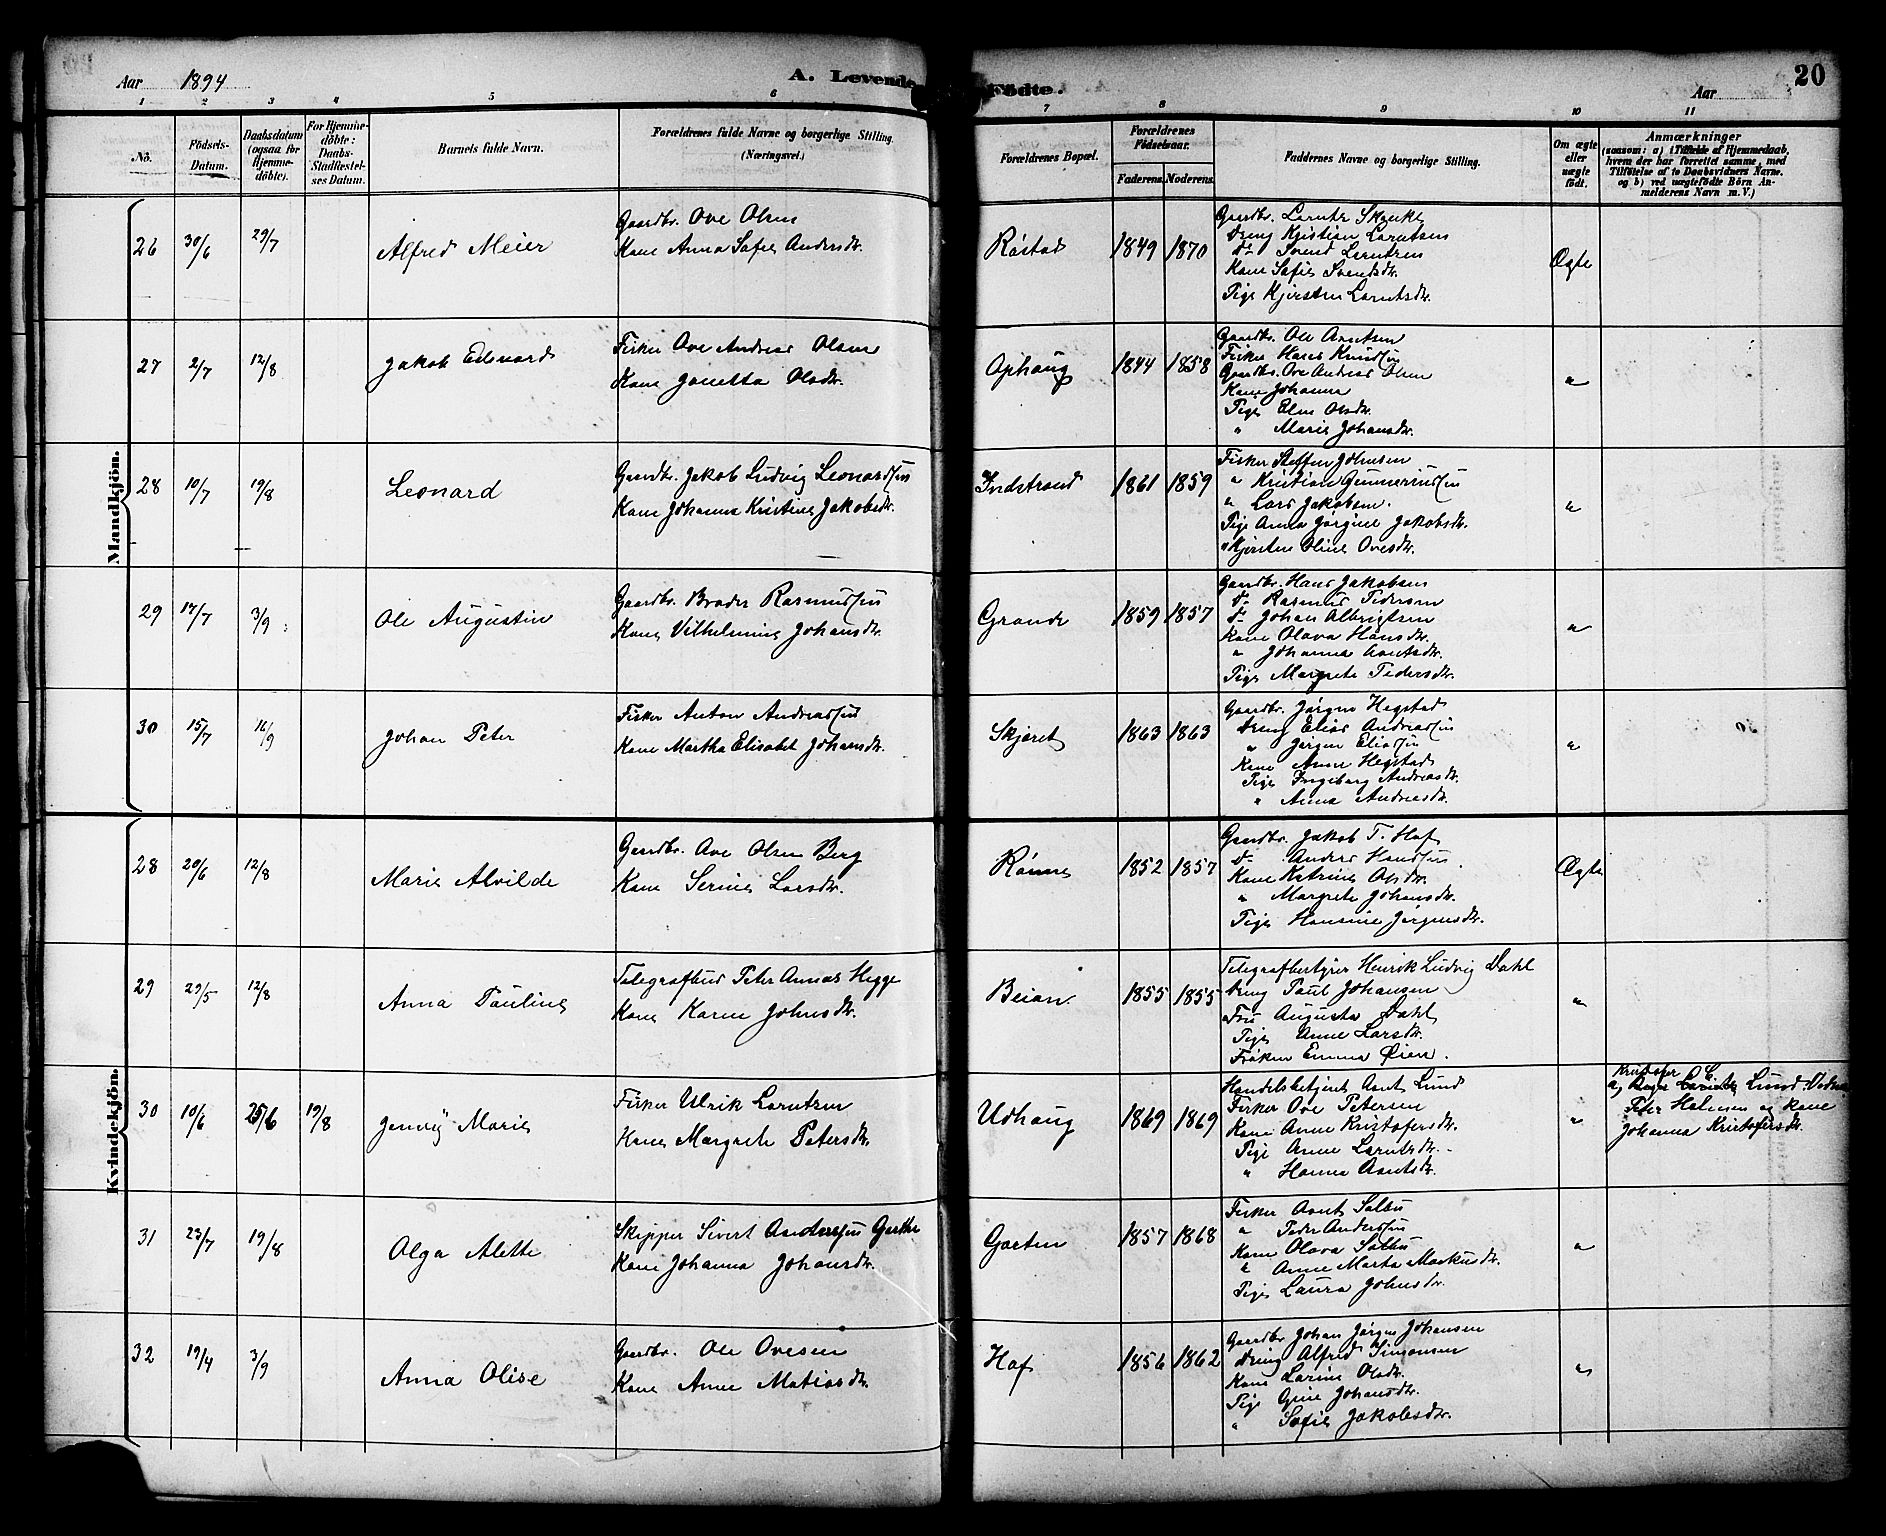 Aar 1894
A. Levende Fødte.
Aar
20
1 2 3 4 5 6 7 8 9 10 11
No.
Fødsels-Datum.
Daabsdatum (ogsaa for Hjemme-døbte).
For Hjemme-døbte: Daabs-Stadfæstel-ses Datum.
Barnets fulde Navn.
Forældrenes fulde Navne og borgerlige Stilling. (Næringsvei.)
Forældrenes Bopæl.
Forældrenes Fødselsaar.
Faderens.
Moderens.
Faddernes Navne og borgerlige Stilling.
Om ægte eller uægte født.
Anmærkninger
(saasom: a) i Tilfælde af Hjemmedaab, hvem der har forrettet samme, med Tilføielse af to Daabsvidners Navne, og b) ved uægtefødte Børn Anmelderens Navn m. V.)
Mandkjøn.
26 30/6 29/7 Alfred Meier
Gaardbr. Ove Olsen
Kone Anna Sofie Andersdr.
Røstad 1849 1870
Gaardbr. Lornts
Dreng Kristian Lorntsen
do Svend Lorntzen
Kone Sofie Svendsdr.
Pige Kjersten Lorntsdr.
Ægte
27 2/7 12/8 Jakob Edevard
Fisker Ove Andreas Olsen
Kone Jonetta Olsdr.
Ophaug 1844 1858
Gaardbr. Ole Arntsen
Fisker Hans Knudsen
Gaardbr. Ove Andreas Olsen
Kone Johanna
Pige Elen Olsdr.
" Marie Johansdr.
"
28 10/7 19/8 Leonard
Gaardbr. Jakob Ludvig Leonardsen
Kone Johanna Kristine Jakobsdr.
Indstrand 1861 1859
Fisker Steffen Johnsen
" Kristian Gunneriussen
" Lars Jakobsen.
Pige Anna Jørgine Jakobsdr.
" Kjersten Oline Ovesdr.
"
29 17/7 3/9 Ole Augustin
Gaardbr. Broder Rasmussen
Kone Vilhelmine Johansdr.
Grande 1859 1857
Gaardbr. Hans Jakobsen
do Rasmus Pedersen
do Johan Albrigtsen
Kone Olava Hansdr.
" Johanna Arntsdr.
Pige Margrete Pedersdr.
"
30 15/7 16/9 Johan Peter
Fisker Anton Andreassen
Kone Martha Elisabet Johansdr.
Skjøret 1863 1863
Gaardbr. Jørgen Hegstad
Dreng Elias Andreassen
" Jørgen Eliassen
Kone Anne Hegstad
Pige Ingeborg Andreasdr.
" Anna Andreasdr.
"
Kvindekjøn.
28 20/6 12/8 Marie Alvilde
Gaardbr. Ove Olsen Berg
Kone Serine Larsdr.
Rønne 1852 1857
Gaardbr. Jakob T. Hof
do Anders Hansen
Kone Katrine Olsdr.
" Margrete Johansdr.
Pige Hansine Jørgensdr.
Ægte
29 29/5 12/8 Anna Pauline
Telegrafbud Peter Annas Hegge
Kone Karen Johnsdr.
Beian 1855 1855
Telegrafbestyrer Henrik Ludvig Dahl
Dreng Paul Johansen
Fru Augusta Dahl
Pige Anne Larsdr.
Frøken Emma Øien.
"
30 10/6 25/6 19/8 Jenny Marie
Fisker Ulrik Lorntzen
Kone Margrete Petersdr.
Udhaug 1869 1869
Handelsbetjent Arnt Lund
Fisker Ove Petersen
Kone Anne Kristofersdr.
Pige Anne Lorntsdr.
" Hanna Arntsdr.
"
Kristofer
a, Lund.
Peter og Kone
Johanna Kristofersdr.
31 23/7 19/8 Olga Alette
Skipper Sivert Anderssen Garten
Kone Johanna Johansdr.
Garten 1857 1868
Fisker Arnt Solbu
" Peder Anderssen
Kone Olava Solbu
" Anne Marta Markusdr.
Pige Laura Johnsdr.
"
32 19/4 3/9 Anna Olise
Gaardbr. Ole Ovesen
Kone Anne Matiasdr.
Hof 1856 1862
Gaardbr Johan Jørgen Johansen
Dreng Alfred Simonsen
Kone Larine Olsdr.
Pige Gine Johansdr.
" Sofie Jakobsdr.
"